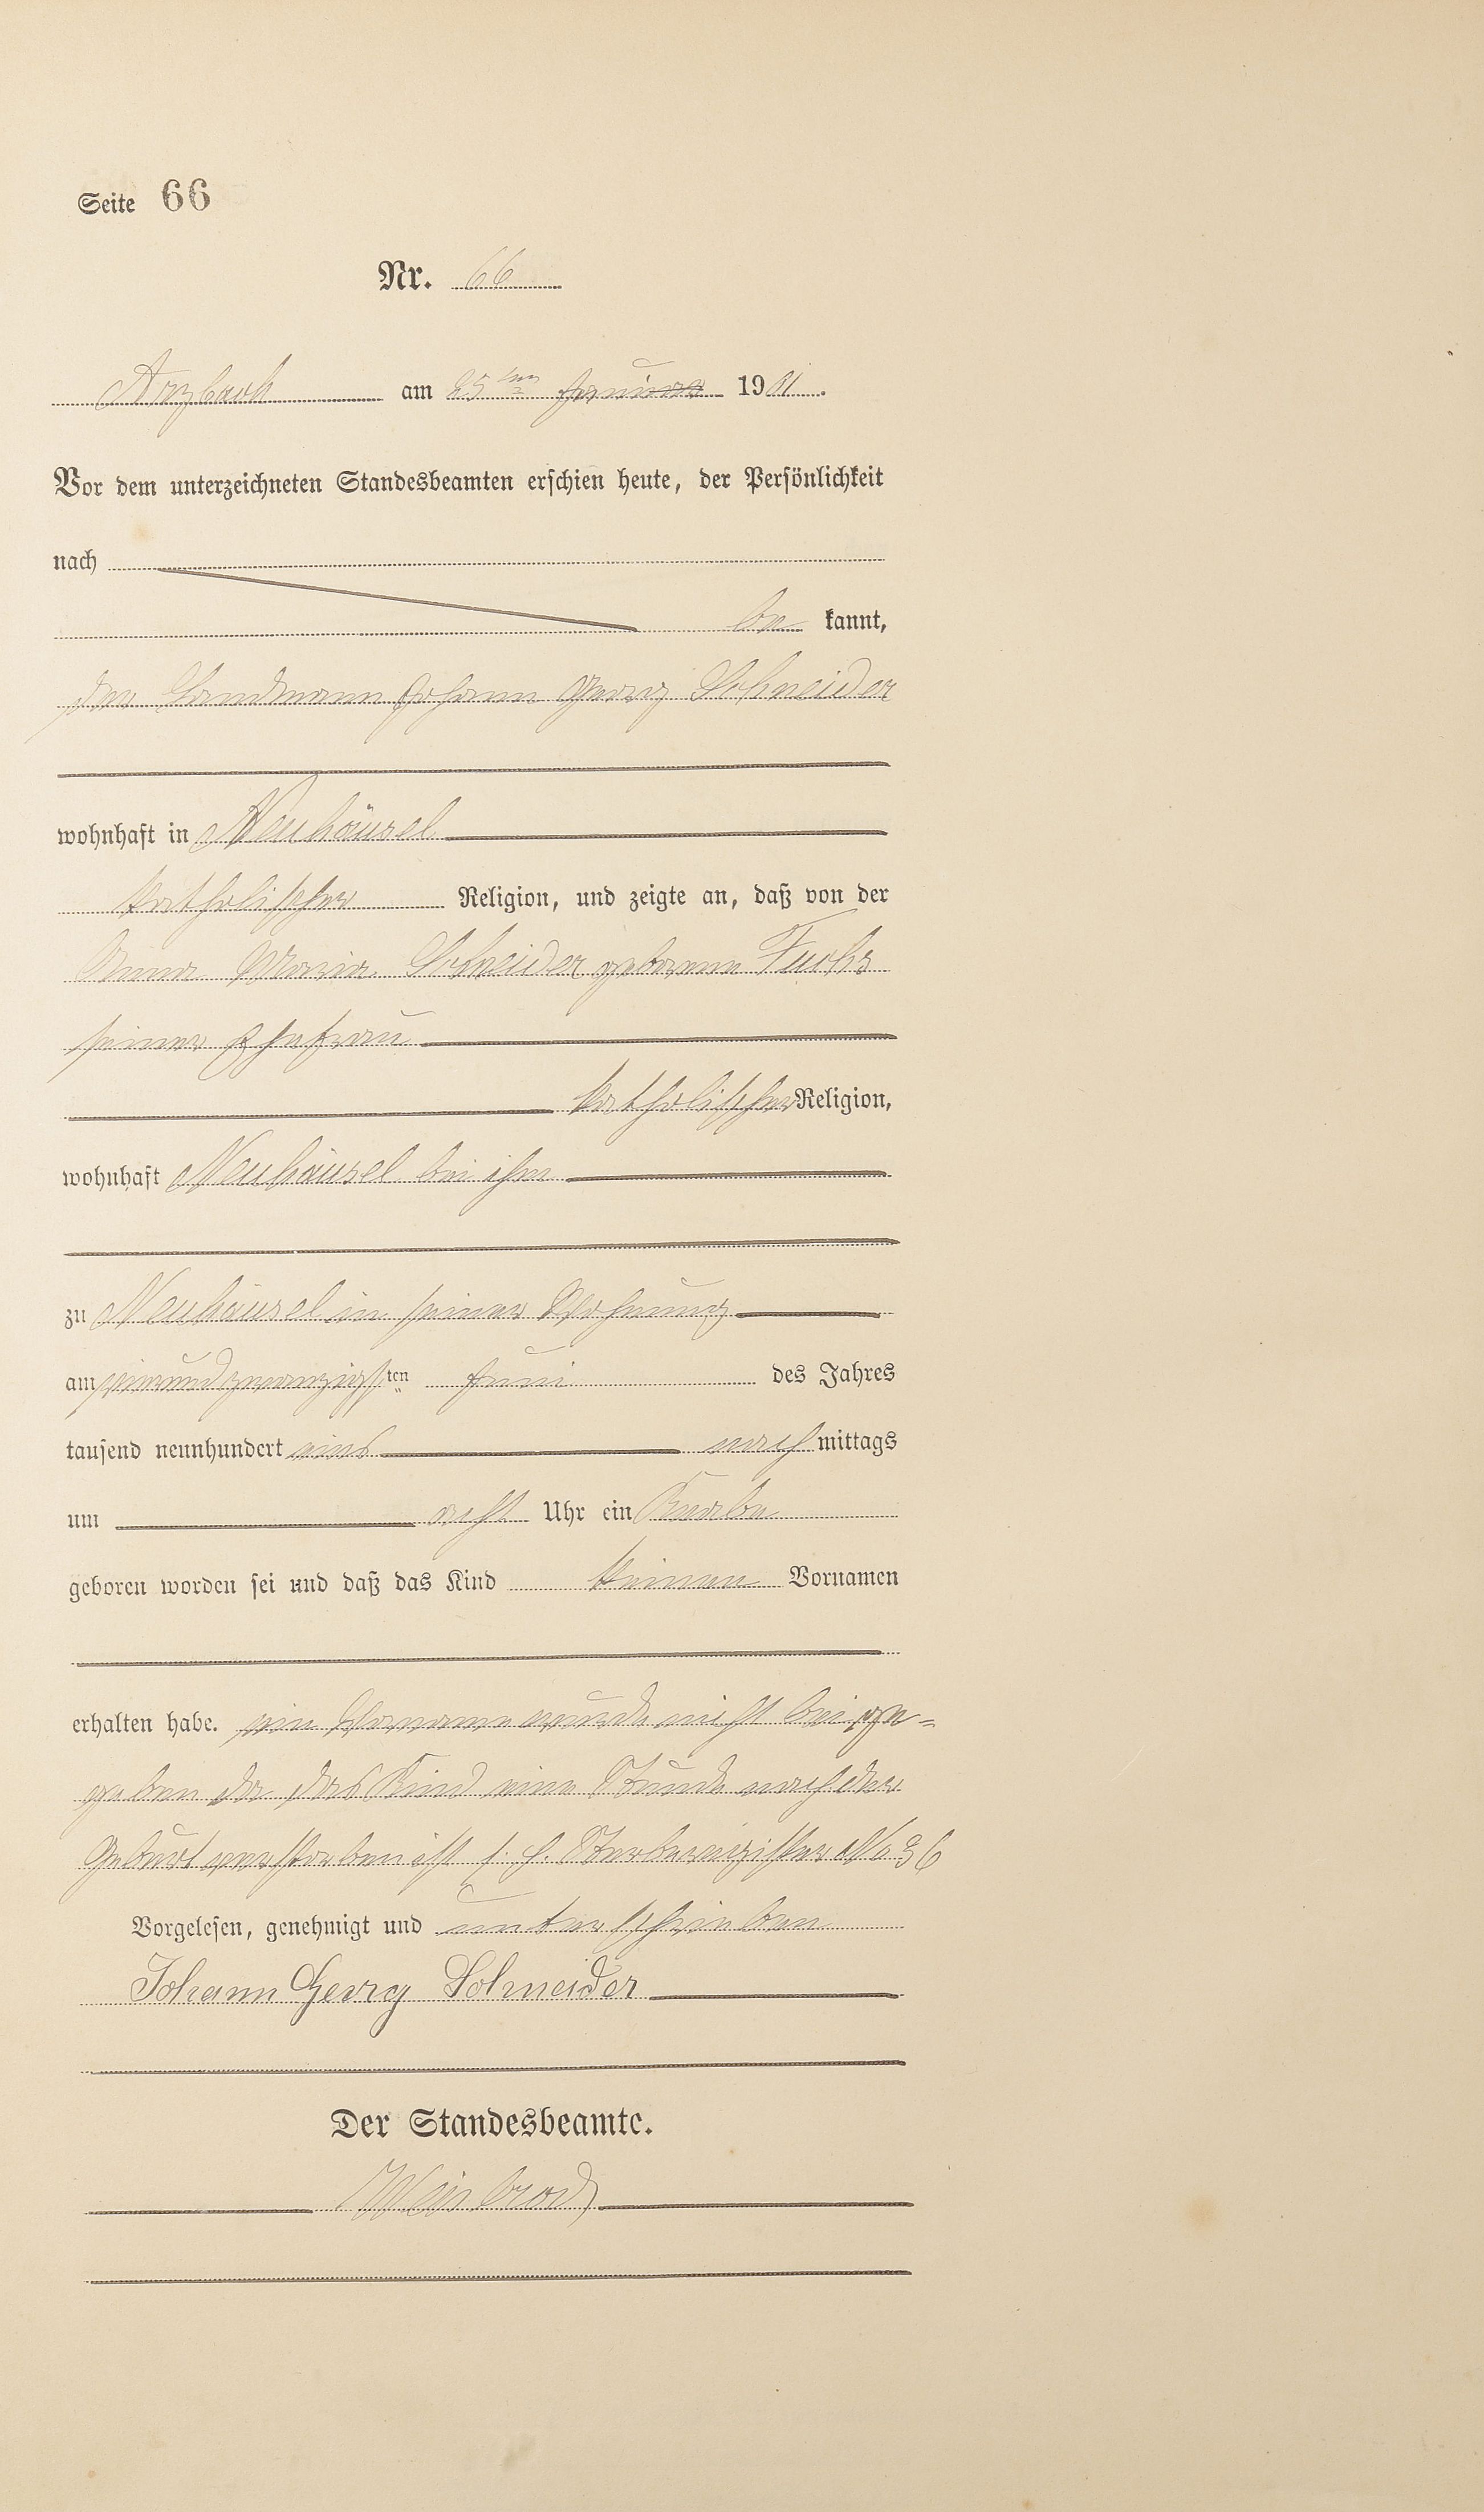 Seite 66
Nr. 66
Arzbach am 25ten Juni 1901.
Vor dem unterzeichneten Standesbeamten erschien heute, der Persönlichkeit
nach
be kannt,
der Landmann Johann Georg Schneider
wohnhaft in Neuhäusel
katholischer Religion, und zeigte an, daß von der
Anna Maria Schneider geborene Fuchs
seiner Ehefrau
katholischer Religion,
wohnhaft Neuhäusel bei ihm
zu Neuhäusel in seiner Wohnung
am vierundzwanzigsten Juni des Jahres
tausend neunhundert eins nach mittags
um acht Uhr ein Knabe
geboren worden sei und daß das Kind keinen Vornamen
erhalten habe. ein Vorname wurde nicht beige-
geben da das Kind eine Stunde nach der
Geburt verstorben ist s. h. Sterberegister No 36
Vorgelesen, genehmigt und unterschrieben
Johann Georg Schneider
Der Standesbeamte.
Weisbrod